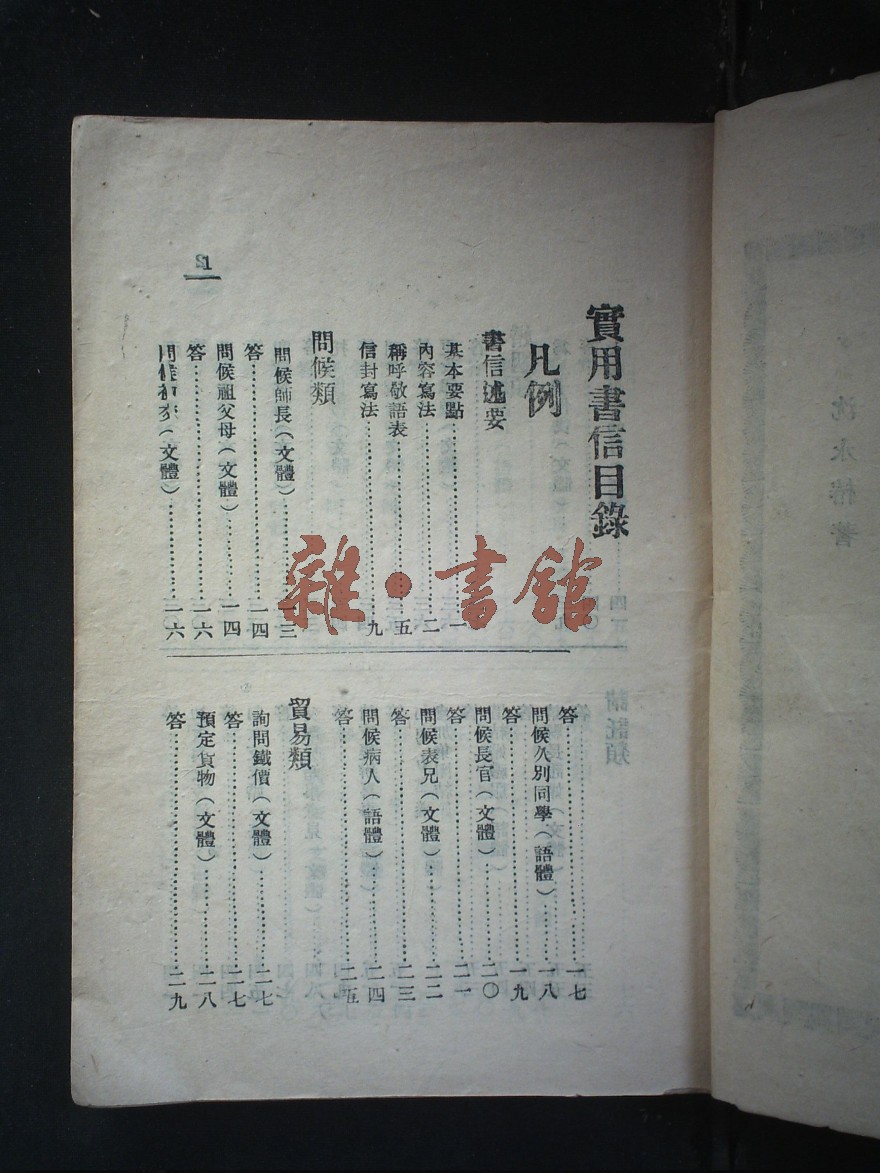 實用書信目錄
凡例
書信述要
基本要點…………一
內容寫法…………二
稱呼敬語表…………五
信封寫法…………九
問候類
問候師長(文體)…………一三
答…………一四
問候祖父母(文體)…………一四
答…………一六
(文體)…………一六
答…………一七
問候久別同學(語體)…………一八
答…………一九
問候長官(文體)…………二〇
答…………二一
問候表兄(文體)…………二二
答…………二三
問候病人(語體)…………二四
答…………二五
貿易類
詢問鐵價(文體)…………二七
答…………二七
預定貨物(文體)…………二八
答…………二九
1
雜·書館